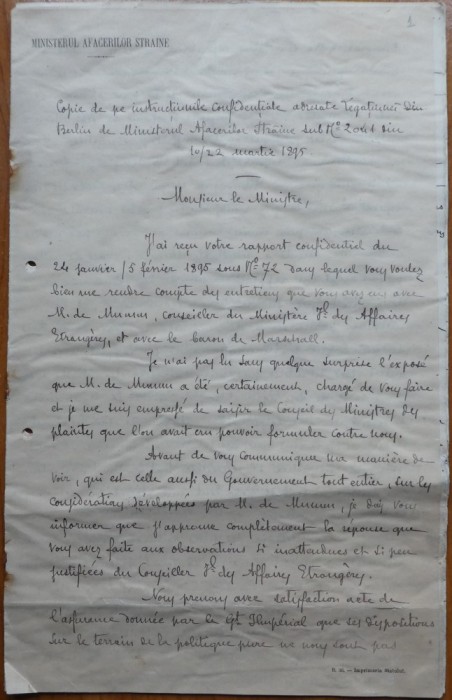 1
MINISTERUL AFACERILOR STRAINE
Copie de pe instructiunile confidențiale adresate Legațiunei din
Berlin de Ministerul Afacerilor Străine sub No 2041 din
10/22 martie 1895.
Monsieur le Ministre,
J'ai reçu votre rapport confidentiel du
24 janvier / 5 février 1895 sous No 72 dans lequel vous voulez
bien me rendre compte des entretiens que vous avez eus avec
M. de Mumm, conseiller du Ministère Jal des Affaires
Etrangères, et avec le baron de Marschall.
Je n'ai pas lu sans quelque surprise l'exposé
que M. de Mumm a été, certainement, chargé de vous faire
et je me suis empressé de saisir le Conseil des Ministres des
plaintes que l'on avait cru pouvoir formuler contre nous.
Avant de vous communiquer ma manière de
voir, qui est celle aussi du Gouvernement tout entier, sur les
considérations développées par M. de Mumm, je dois vous
informer que j'approuve complètement la réponse que
vous avez faite aux observations si inattendues et si peu
justifiées du Conseiller Jal des Affaires Etrangères.
Nous prenons avec satisfaction acte de
l'assurance donnée par le Impérial que ses dispositions
sur le terrain de la politique pure ne nous sont pas